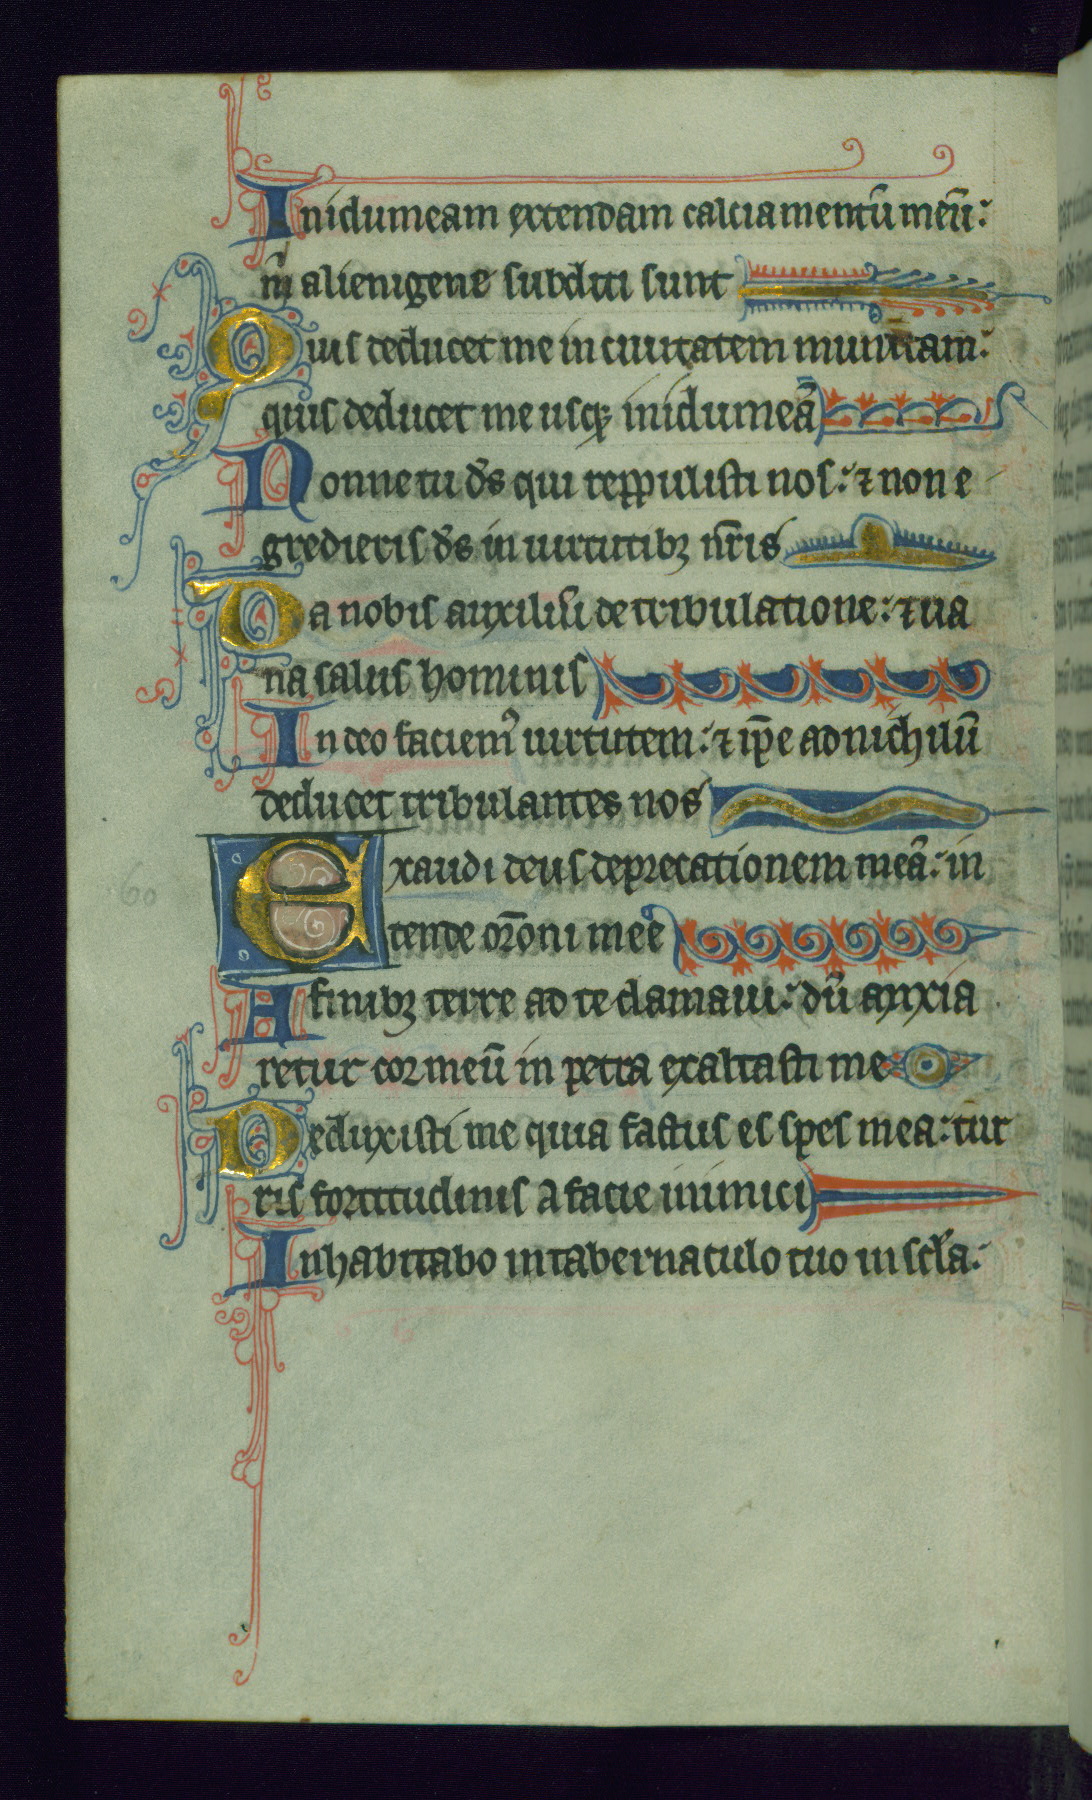 In idumeam extendam calciamentū meū:
m̄ alienigene subditi sunt
Quis deducet me in ciuitatem munitam:
quis deducet me usqꝫ in idumeā
Nonne tu ds̄ qui reppulisti nos: ⁊ non e
gredieris ds̄ in uirtutibꝫ nr̄is
Da nobis auxiliū de tribulatione: ⁊ ua
na salus hominis
In deo faciemꝰ uirtutem: ⁊ ip̄e ad nichilū
deducet tribulantes nos
Exaudi deus deprecationem meā: in
tende or̄oni mee
60
A finibꝫ terre ad te clamaui: dū anxia
retur cor meū in petra exaltasti me
Deduxisti me quia factus es spes mea: tur
ris fortitudinis a facie inimici
Inhabitabo in tabernaculo tuo in scl̄a: